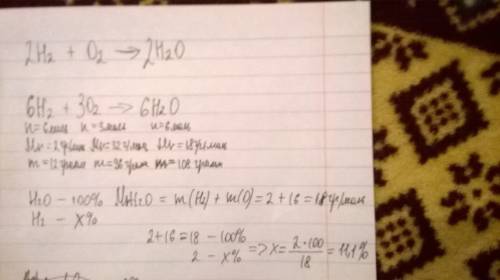 2H₂ + O₂ → 2H₂O
6H₂ + 3O₂ → 6H₂O
n=6моль n=3моль n=6моль
Mr=2гр/моль Mr=32гр/моль Mr=18гр/моль
m=12грамм m=96грамм m=108грамм
H₂O – 100% MrH₂O = m(H₂) + m(O) = 2 + 16 = 18гр/моль
H₂ – X%
2+16=18 – 100%
2 – X% => X= 2·100/18 = 11,1%